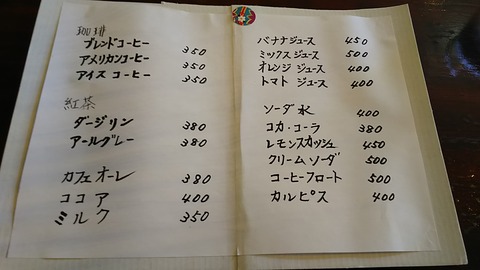 珈琲
ブレンドコーヒー 350
アメリカンコーヒー 350
アイス コーヒー 350
紅茶
ダージリン 380
アールグレー 380
カフェオーレ 380
ココア 400
ミルク 350
バナナジュース 450
ミックスジュース 500
オレンジ ジュース 400
トマト ジュース 400
ソーダ水 400
コカ・コーラ 380
レモンスカッシュ 450
クリームソーダ 500
コーヒーフロート 500
カルピス 400